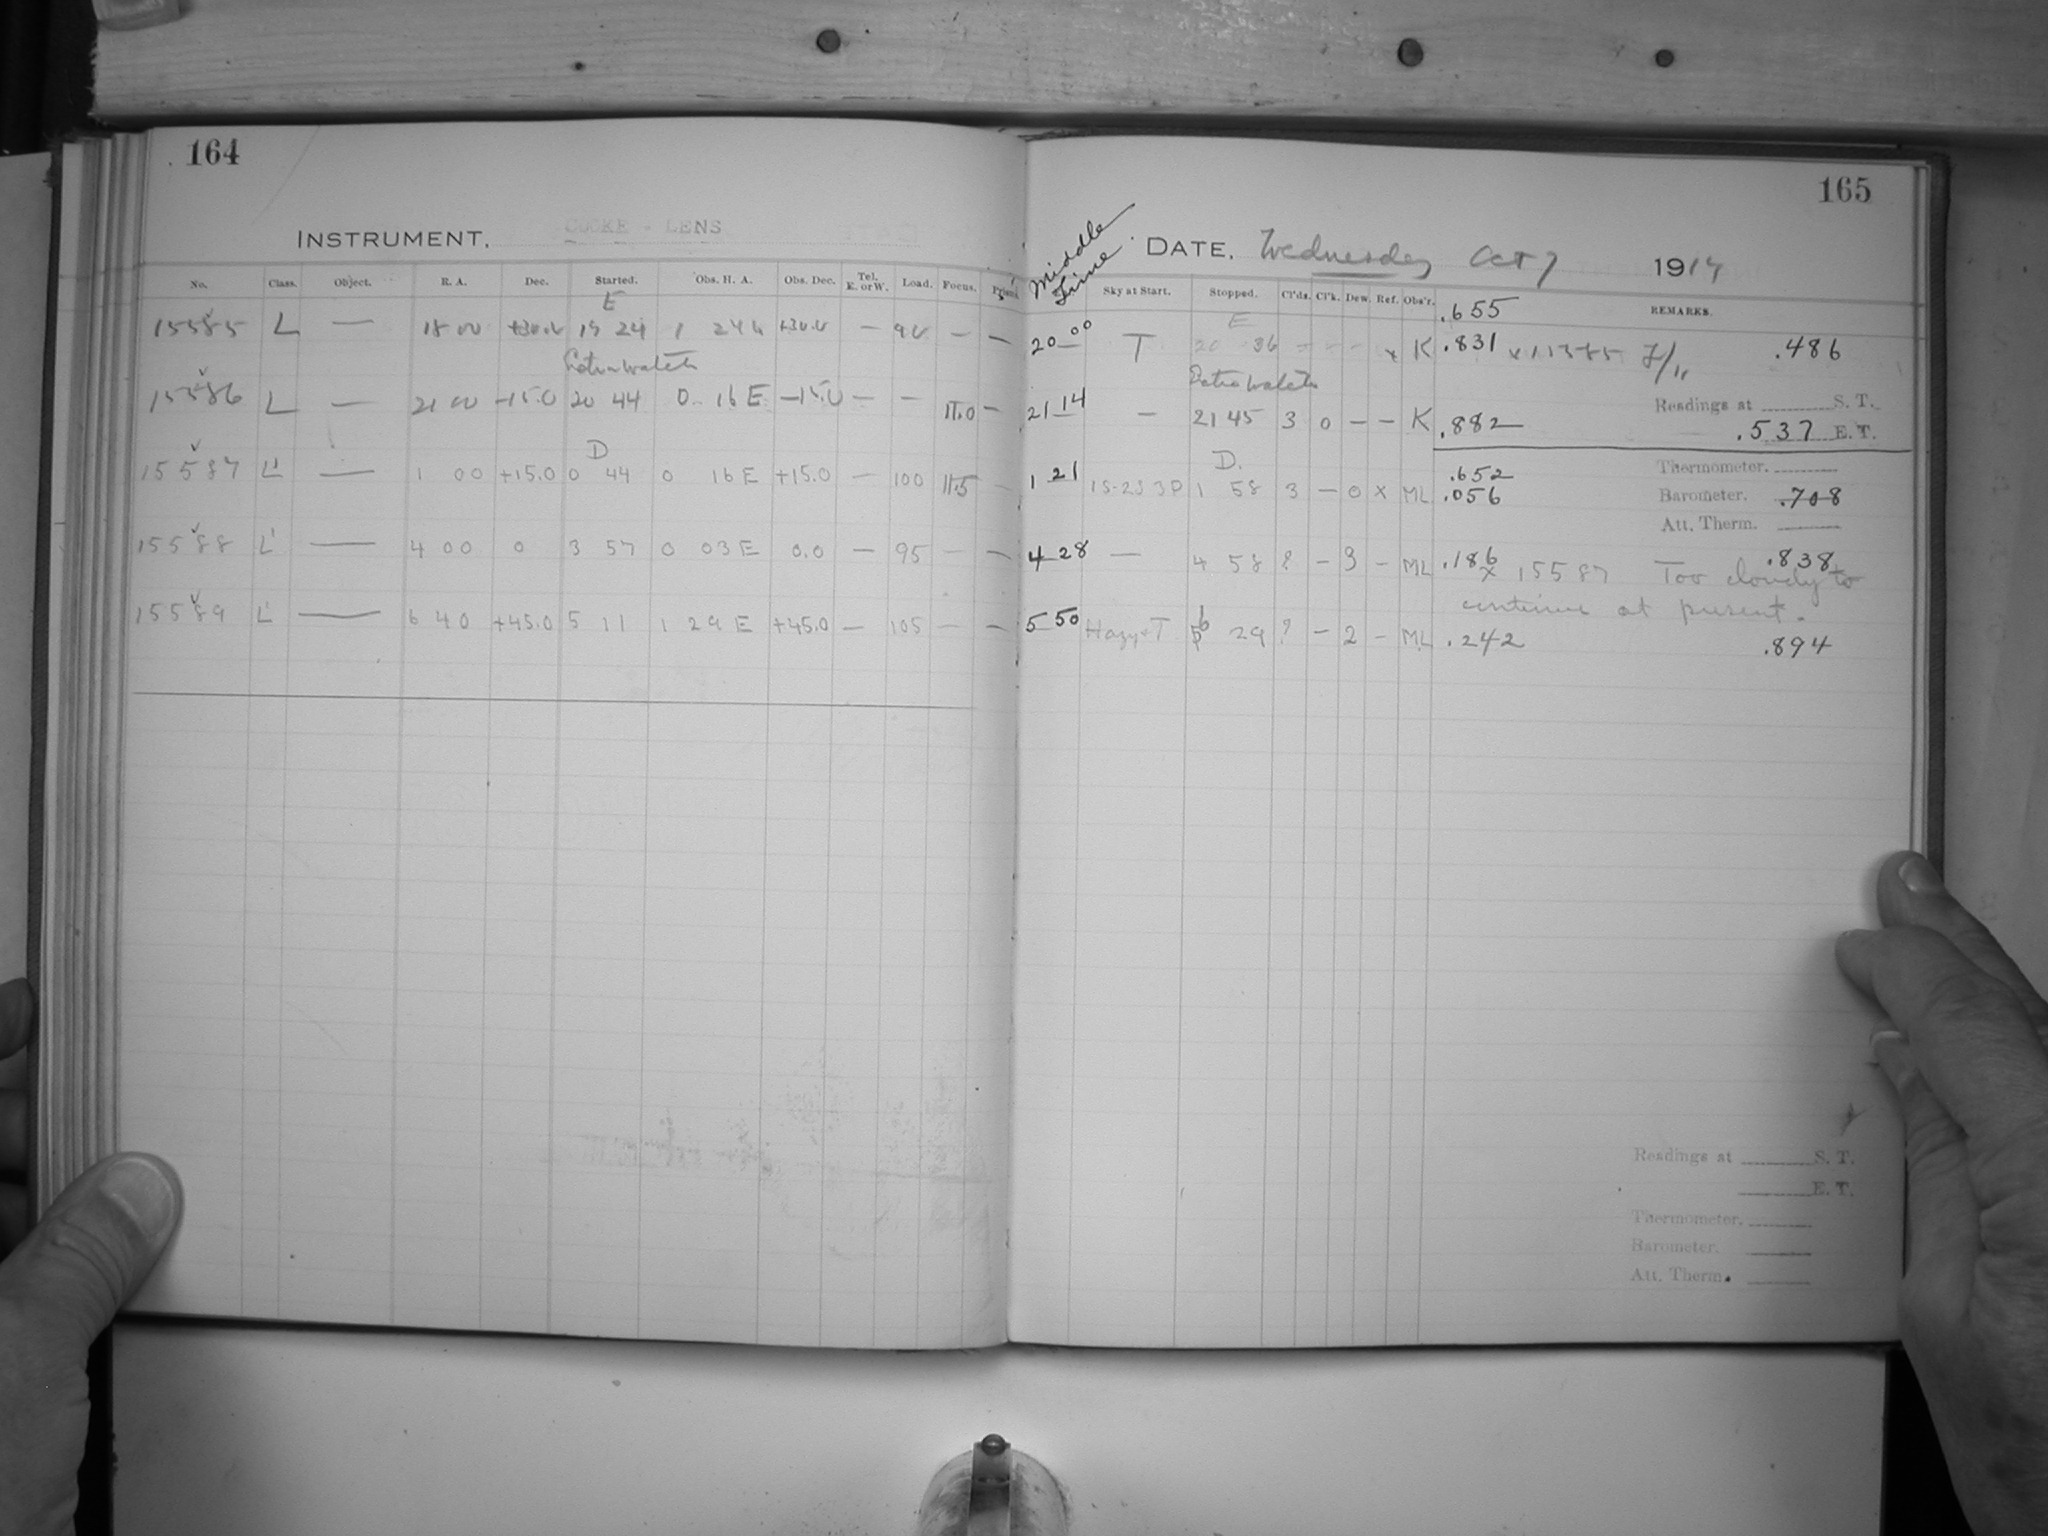 164
INSTRUMENT. COOKE - LENS
No. Class. Object. R. A. Dec. Started. Obs. H. A. Obs. Dec. Tel. E. or W. Load. Focus.
E
15585 L — 18 00 +30.0 19 24 1 24 +30.0 — 90 — —
15586 L — 21 00 -15.0 20 44 0 16 E -15.0 — — 11.0 —
D
15587 L — 1 00 +15.0 0 44 0 16 E +15.0 — 100 11.5 —
15588 L — 4 00 0 3 57 0 03 E 0.0 — 95 — —
15589 L — 6 40 +45.0 5 11 1 29 E +45.0 — 105 — —
165
Middle Time
DATE. Wednesday Oct 7 1914
Sky at Start. Stopped. Cl'ds. Cl'k. Dew. Ref. Obs'r. .655 REMARKS.
E
20 00 T 20 36 - - - x K .831 x 15585 .486
21 14 — 21 45 3 0 — — K .882
Readings at S. T.
.537 E. T.
D.
1 21 1S-2S 3P 1 58 3 — 0 x ML .652 .056
Thermometer.
Barometer. .708
Att. Therm.
4 28 — 4 58 ? — 3 — ML .186 .838
x 15587 Too cloudy to
continue at present.
5 50 Hazy T 6 29 ? — 2 — ML .242 .894
Readings at S. T.
E. T.
Thermometer.
Barometer.
Att. Therm.